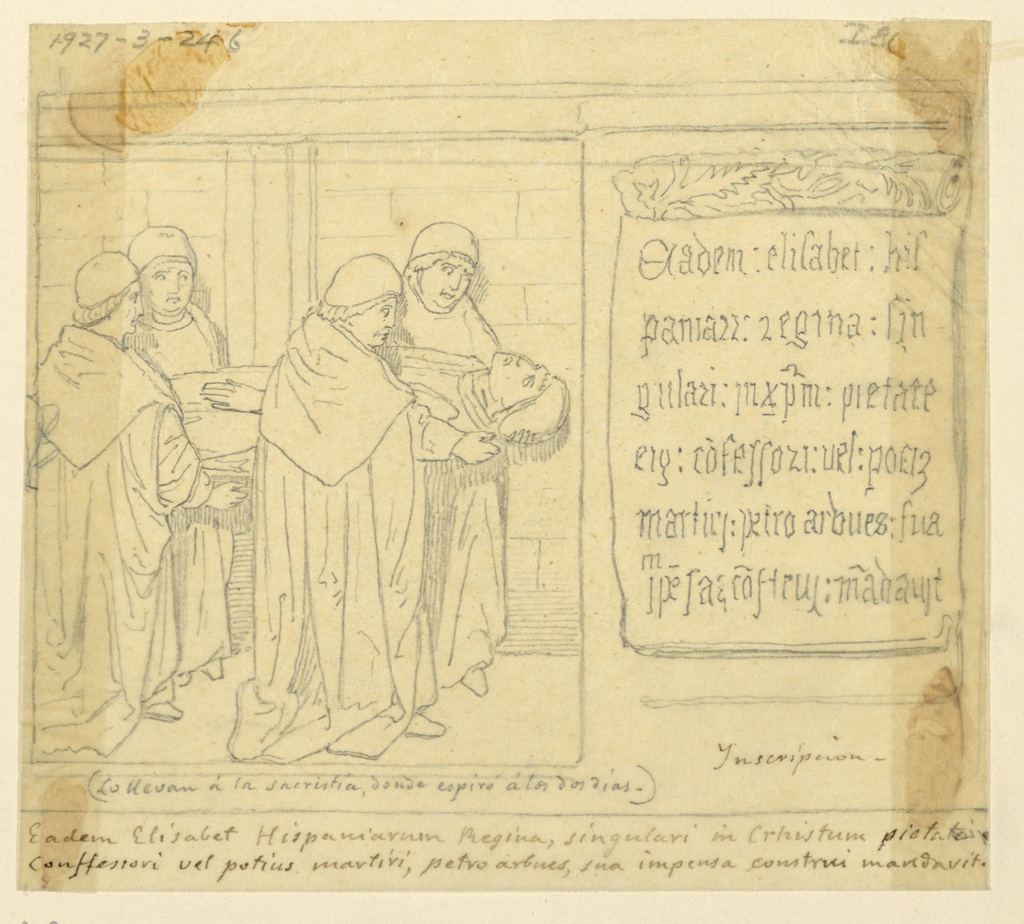 1927-3-246
Eadem : elisabet : his
paniarum : regina : sin
gulari : in xp̃m : pietate
eiꝰ : cõfessori : vel : pociꝰ
martiri : petro arbues : sua
m
ĩpẽsa cõstrui : mãdavit
Inscripcion -
(Lo llevan á la sacristia, donde espiró á los dos dias -)
Eadem Elisabet Hispaniarum Regina, singulari in Crhistum pietate
Conffessori vel potius martiri, petro arbues, sua impensa construi mandavit.